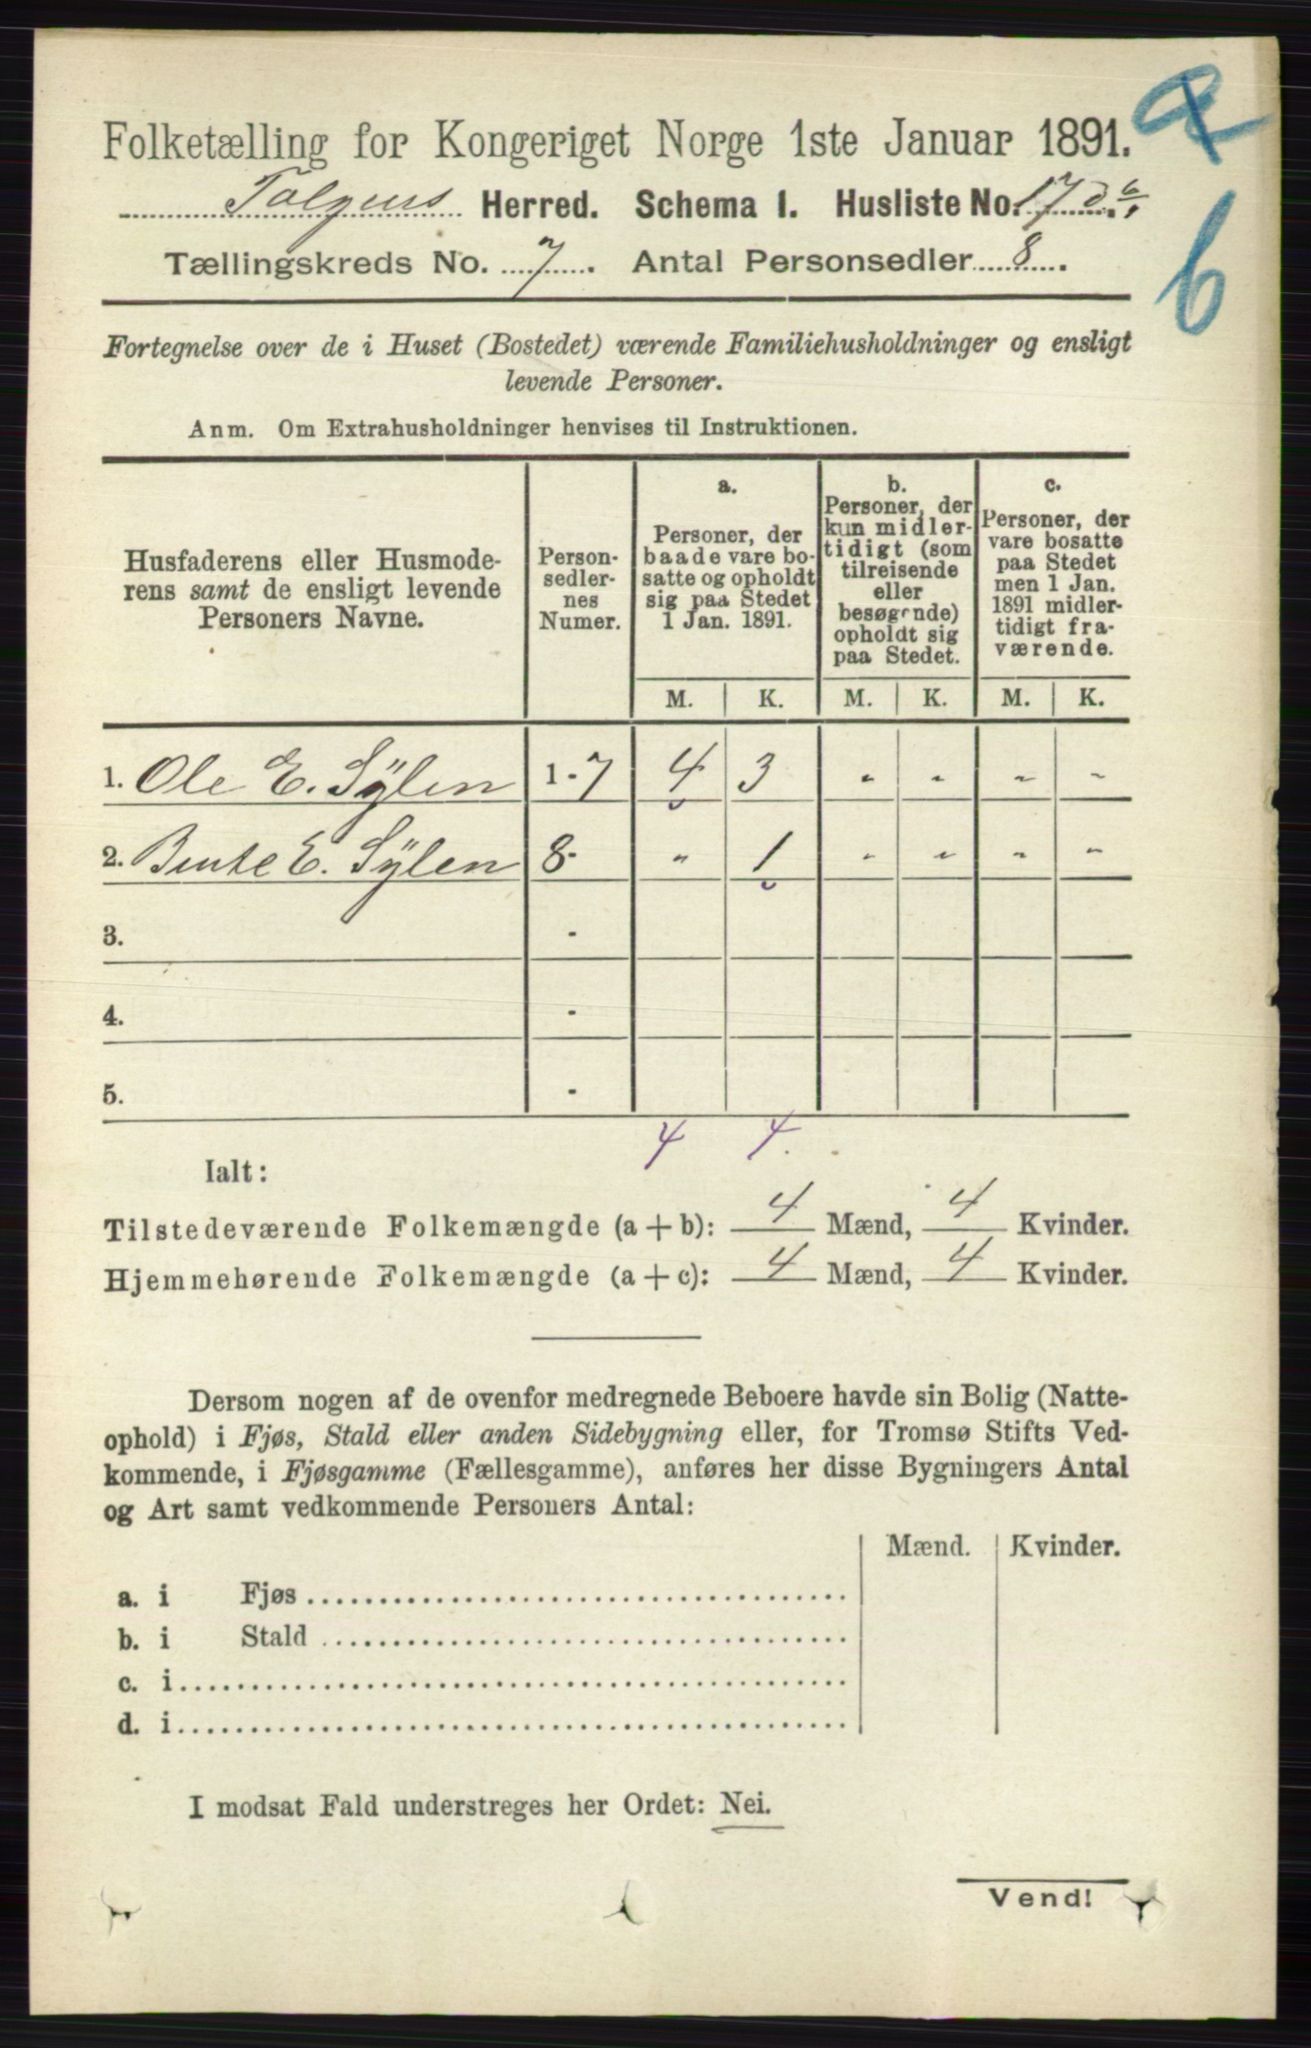 Folketælling for Kongeriget Norge 1ste Januar 1891.
Tolgens Herred. Schema 1. Husliste No. 17
6
Tællingskreds No. 7. Antal Personsedler 8.
Fortegnelse over de i Huset (Bostedet) værende Familiehusholdninger og ensligt
levende Personer.
Anm. Om Extrahusholdninger henvises til Instruktionen.
Husfaderens eller Husmode-
rens samt de ensligt levende
Personers Navne.
Person-
sedler-
nes
Numer.
a.
Personer, der
baade vare bo-
satte og opholdt
sig paa Stedet
1 Jan. 1891.
b.
Personer, der
kun midler-
tidigt (som
tilreisende
eller
besøgende)
opholdt sig
paa Stedet.
c.
Personer, der
vare bosatte
paa Stedet
men 1 Jan.
1891 midler-
tidigt fra-
værende.
M. K. M. K. M. K.
1. Ole E. Sÿlen 1-7 4 3 " " " "
2. Bente E. Sÿlen 8- " 1 " " " "
3. -
4. -
5. -
4 4.
Ialt:
Tilstedeværende Folkemængde (a + b): 4 Mænd, 4 Kvinder.
Hjemmehørende Folkemængde (a + c): 4 Mænd, 4 Kvinder.
Dersom nogen af de ovenfor medregnede Beboere havde sin Bolig (Natte-
ophold) i Fjøs, Stald eller anden Sidebygning eller, for Tromsø Stifts Ved-
kommende, i Fjøsgamme (Fællesgamme), anføres her disse Bygningers Antal
og Art samt vedkommende Personers Antal:
Mænd. Kvinder.
a. i Fjøs
b. i Stald
c. i
d. i
I modsat Fald understreges her Ordet: Nei.
Vend!